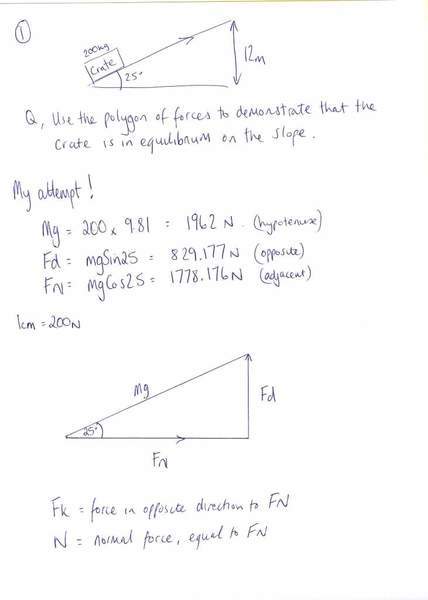 ①
200kg
Crate
25°
12m
Q, Use the polygon of forces to demonstrate that the
crate is in equilibrium on the slope.
My attempt!
Mg = 200 x 9.81 = 1962 N (hypotenuse)
Fd = mgSin25 = 829.177N (opposite)
FN = mgCos25 = 1778.176N (adjacent)
1cm = 200N
Mg
Fd
25°
FN
Fk = force in opposite direction to FN
N = normal force, equal to FN